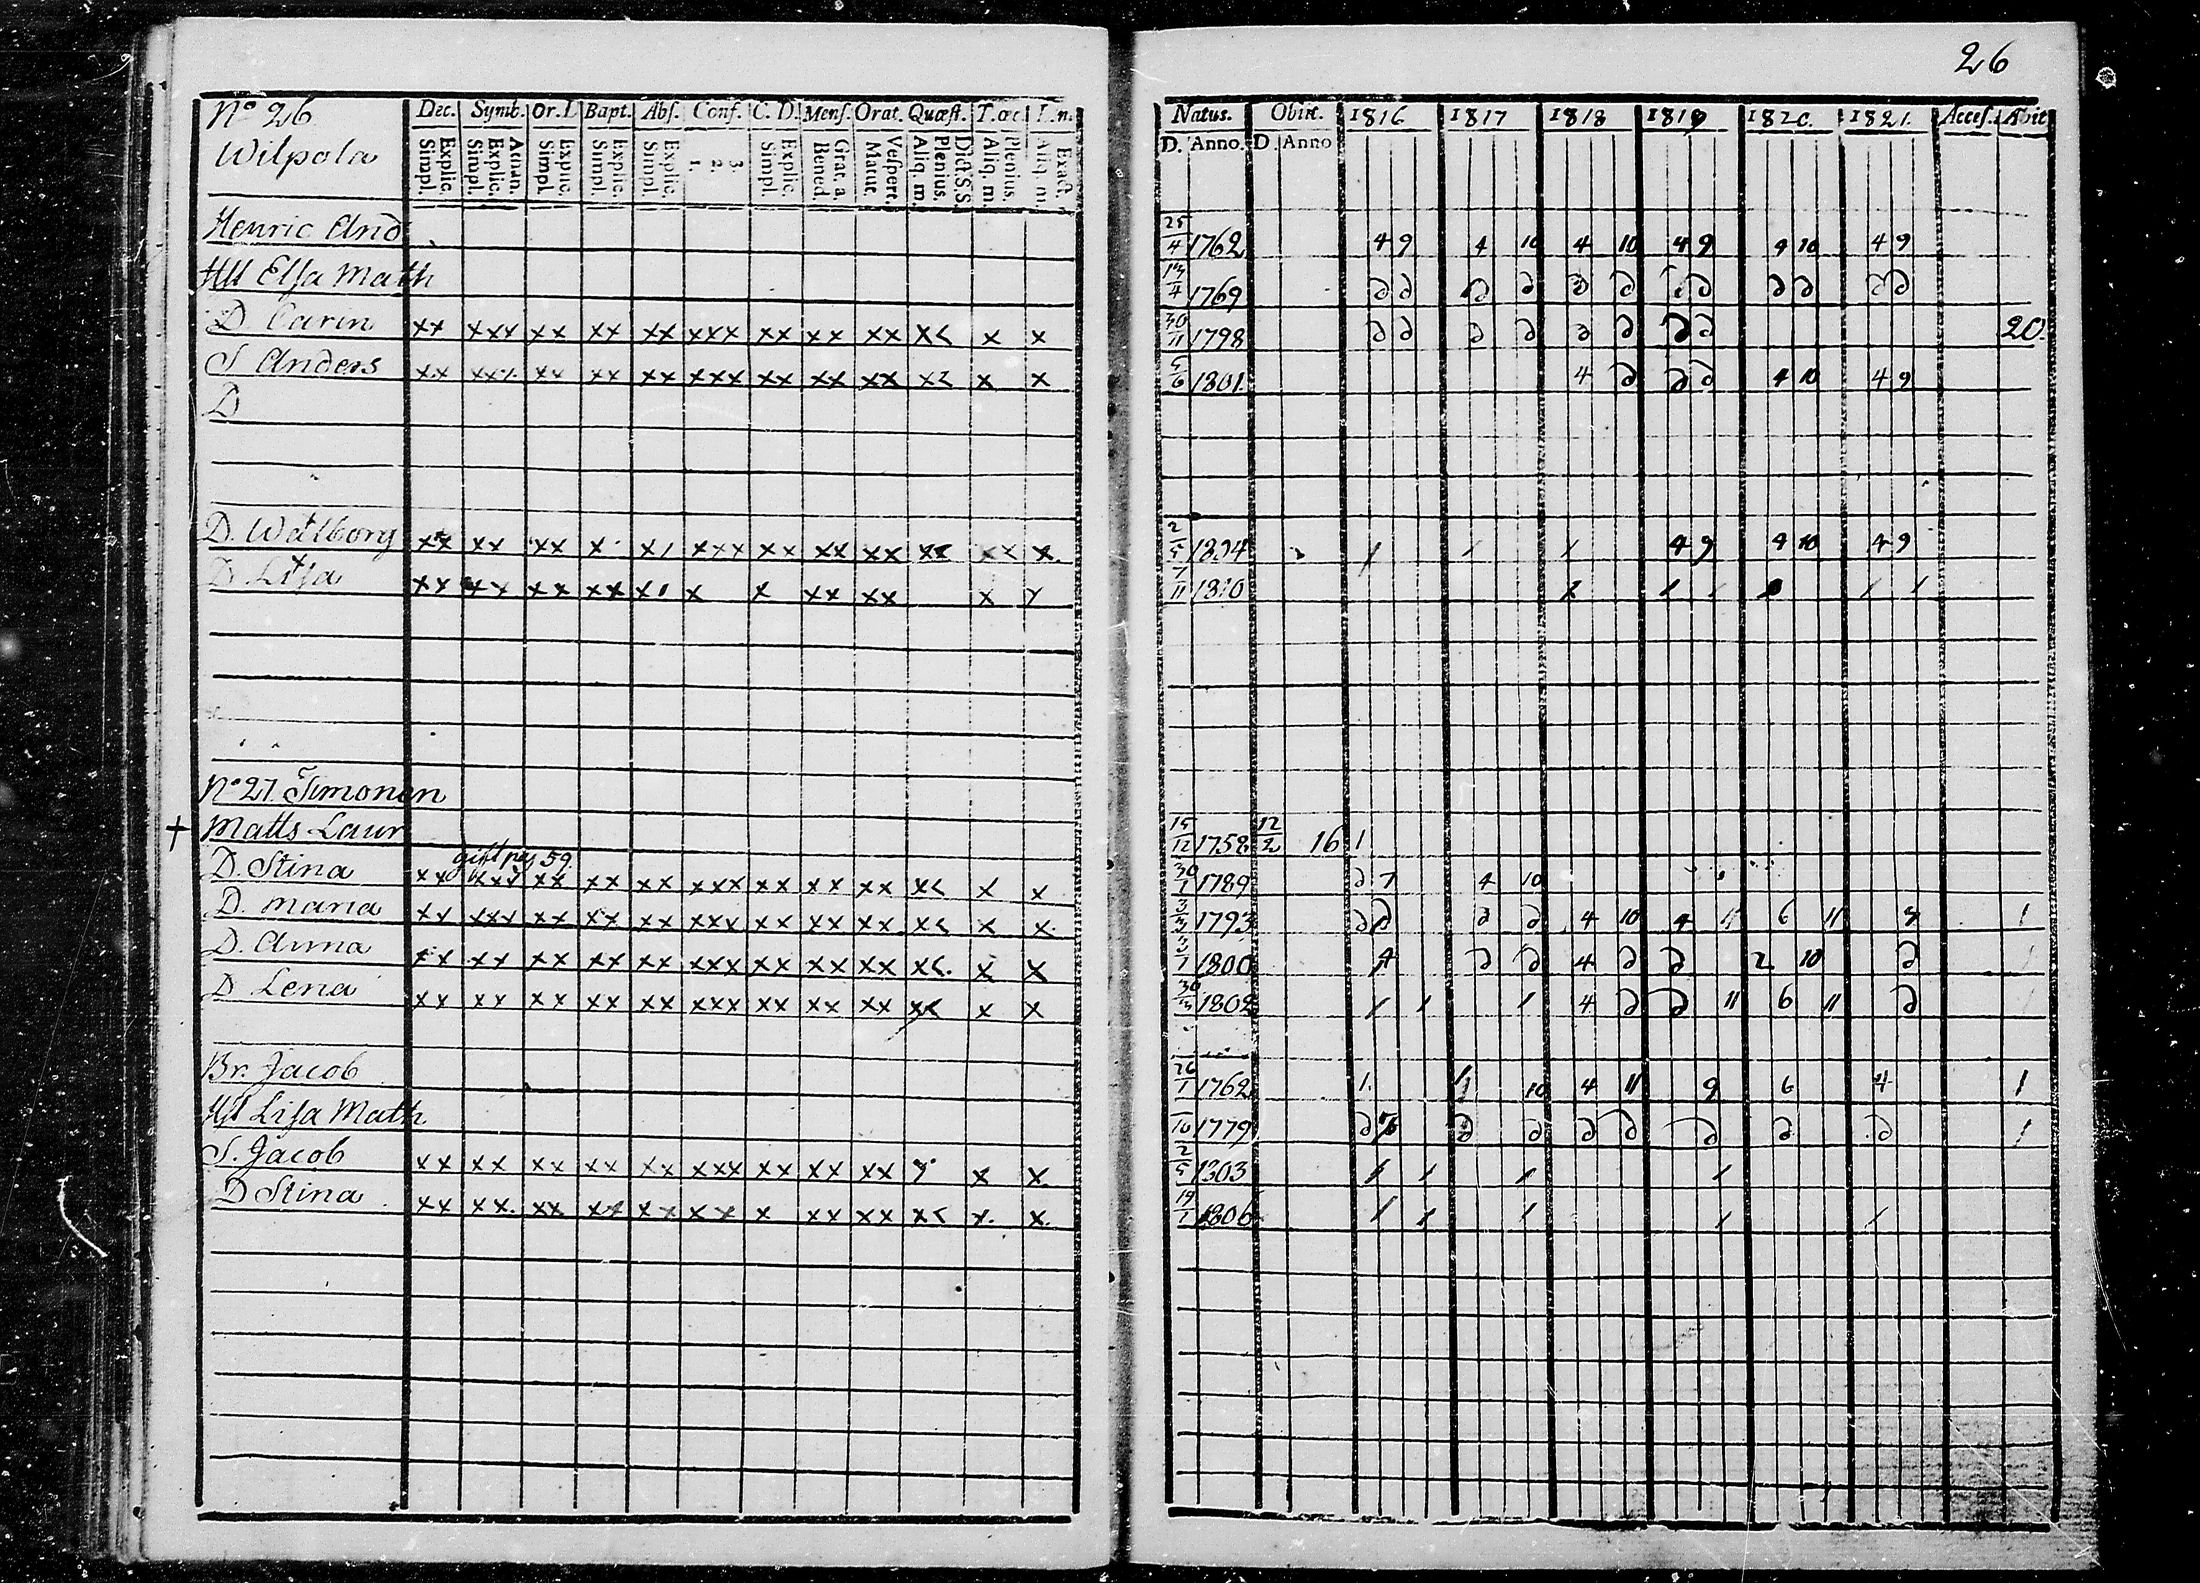 26
No 26
Wilpola
Dec. Symb. Or. D Bapt. Abs. Conf. C. D. Mens. Orat. Quæst. T. œc. I. n.
Explic. Simpl. Acuan. Explic. Simpl. Explic. Simpl. Explic. Simpl. Explic. Simpl. 3. 2. 1. Explic. Simpl. Grat. a. Bened. Vespert. Matut. Dict. S. S. Plenius. Aliq. m. Plenius. Aliq. m. Exact. Aliq. m.
Natus. Obiit. 1816 1817 1818 1819 1820. 1821. Acces. Abit
D. Anno. D. Anno
Henric And 25/4 1762 4 9 4 10 4 10 4 9 4 10 4 9
Hu Elsa Math 1769 D D D D D D D D D D
D Carin xx xxx xx xx xx xxx xx xx xx x< x x 30/11 1798 D D D D D D D D 20.
S Anders xx xxx xx xx xx xxx xx xx xx x x 5/6 1801 4 D D D 4 10 4 9
D
D. Walborg xx xx xx x xxx xx xx xx xx xx x 2/5 1804 / / / 4 9 4 10 4 9
D Lisa xx xx xx xx x x xx xx x 11 1810 / / / /
No 27. Timonen
† Matts Laur 15/12 1758 12/2 16 1
gift på 59
D. Stina xx xxx xx xx xx xxx xx xx xx x< x x 30/1 1789 D 7 4 10
D. Maria xx xxx xx xx xx xxx xx xx xx x< x x 3/3 1793 D D D 4 10 4 11 6 11 1
D. Anna xx xx xx xx xx xxx xx xx xx x<. x x 1800 D D 4 D D 2 10 D
D Lena xx xx xx xx xx xxx xx xx xx x< x x 30/3 1802 / / / 4 D D 11 6 11 D
Br. Jacob 26/1 1762 1 10 4 11 9 6 4 1
Hu Lisa Math /10 1779 D D D D D D D D 1
S. Jacob xx xx xx xx xx xxx xx xx xx x x 2/5 1803 / / / /
D Stina xx xx xx xx xx x xx xx x< x x 19/1 1806 / / / / /